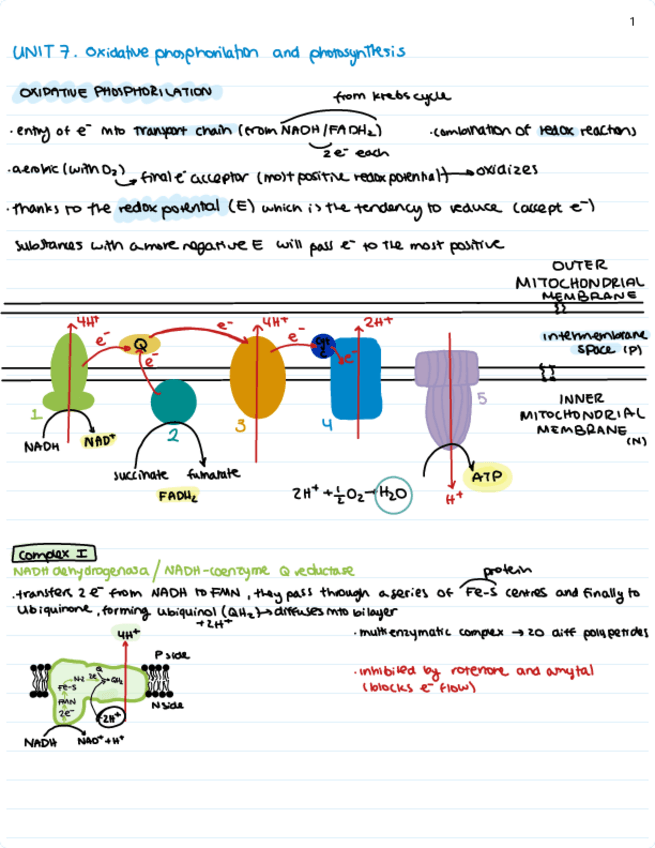 1
UNIT 7. Oxidative phosphorilation and photosynthesis
OXIDATIVE PHOSPHORILATION
from krebs cycle
· entry of e⁻ into transport chain (from NADH/FADH₂)
· combination of redox reactions
2e⁻ each
· aerobic (with O₂)
final e⁻ acceptor (most positive redox potential) → oxidizes
· thanks to the redox potential (E) which is the tendency to reduce (accept e⁻)
substances with a more negative E will pass e⁻ to the most positive
OUTER
MITOCHONDRIAL
MEMBRANE
4H⁺
e⁻
Q
e⁻
e⁻
4H⁺
e⁻
e⁻
2H⁺
intermembrane
space (P)
1
2
3
4
5
INNER
MITOCHONDRIAL
MEMBRANE
(N)
NADH
NAD⁺
succinate
fumarate
FADH₂
2H⁺ + ½O₂ → H₂O
H⁺
ATP
Complex I
NADH dehydrogenasa / NADH-coenzyme Q reductase
protein
· transfers 2 e⁻ from NADH to FMN, they pass through a series of Fe-S centres and finally to
ubiquinone, forming ubiquinol (QH₂) → diffuses into bilayer
+2H⁺
· multienzymatic complex → 20 diff polypetides
· inhibited by rotenone and amytal
(blocks e⁻ flow)
4H⁺
P side
Q
2e⁻
QH₂
Fe-S
FMN
2e⁻
2H⁺
N side
NADH
NAD⁺ + H⁺